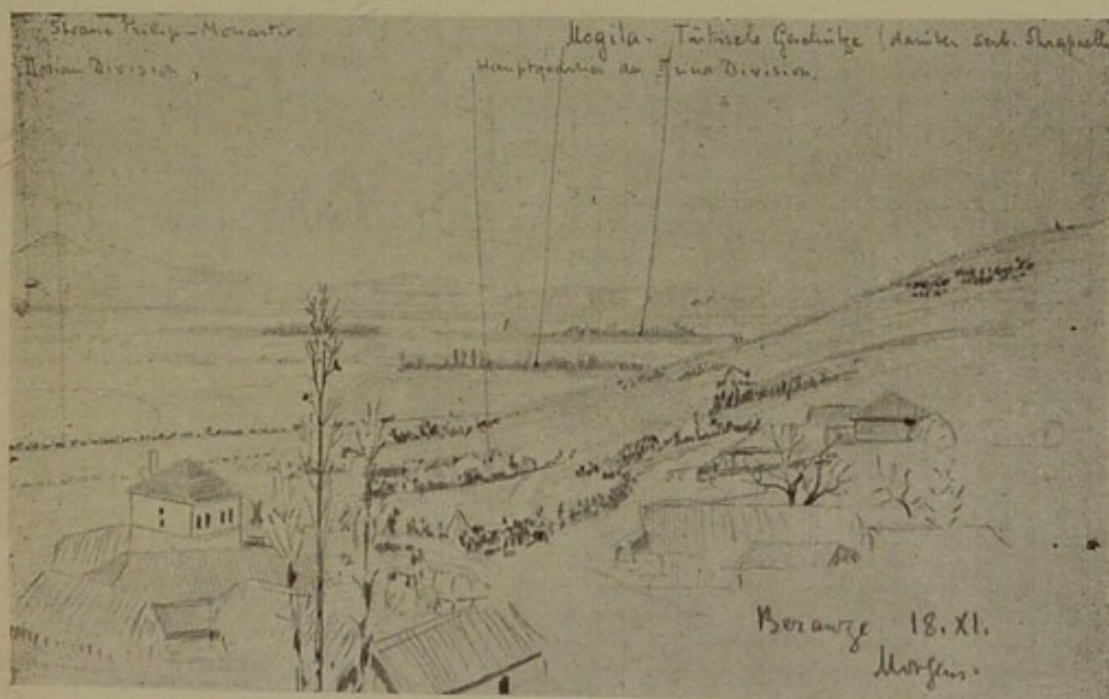 Strasse Prilep-Monastir
Division,
Mogila - Türkische Geschütze (darüber serb. Shrapnells
der Drina Division.
Beranze 18.XI.
Morgens.